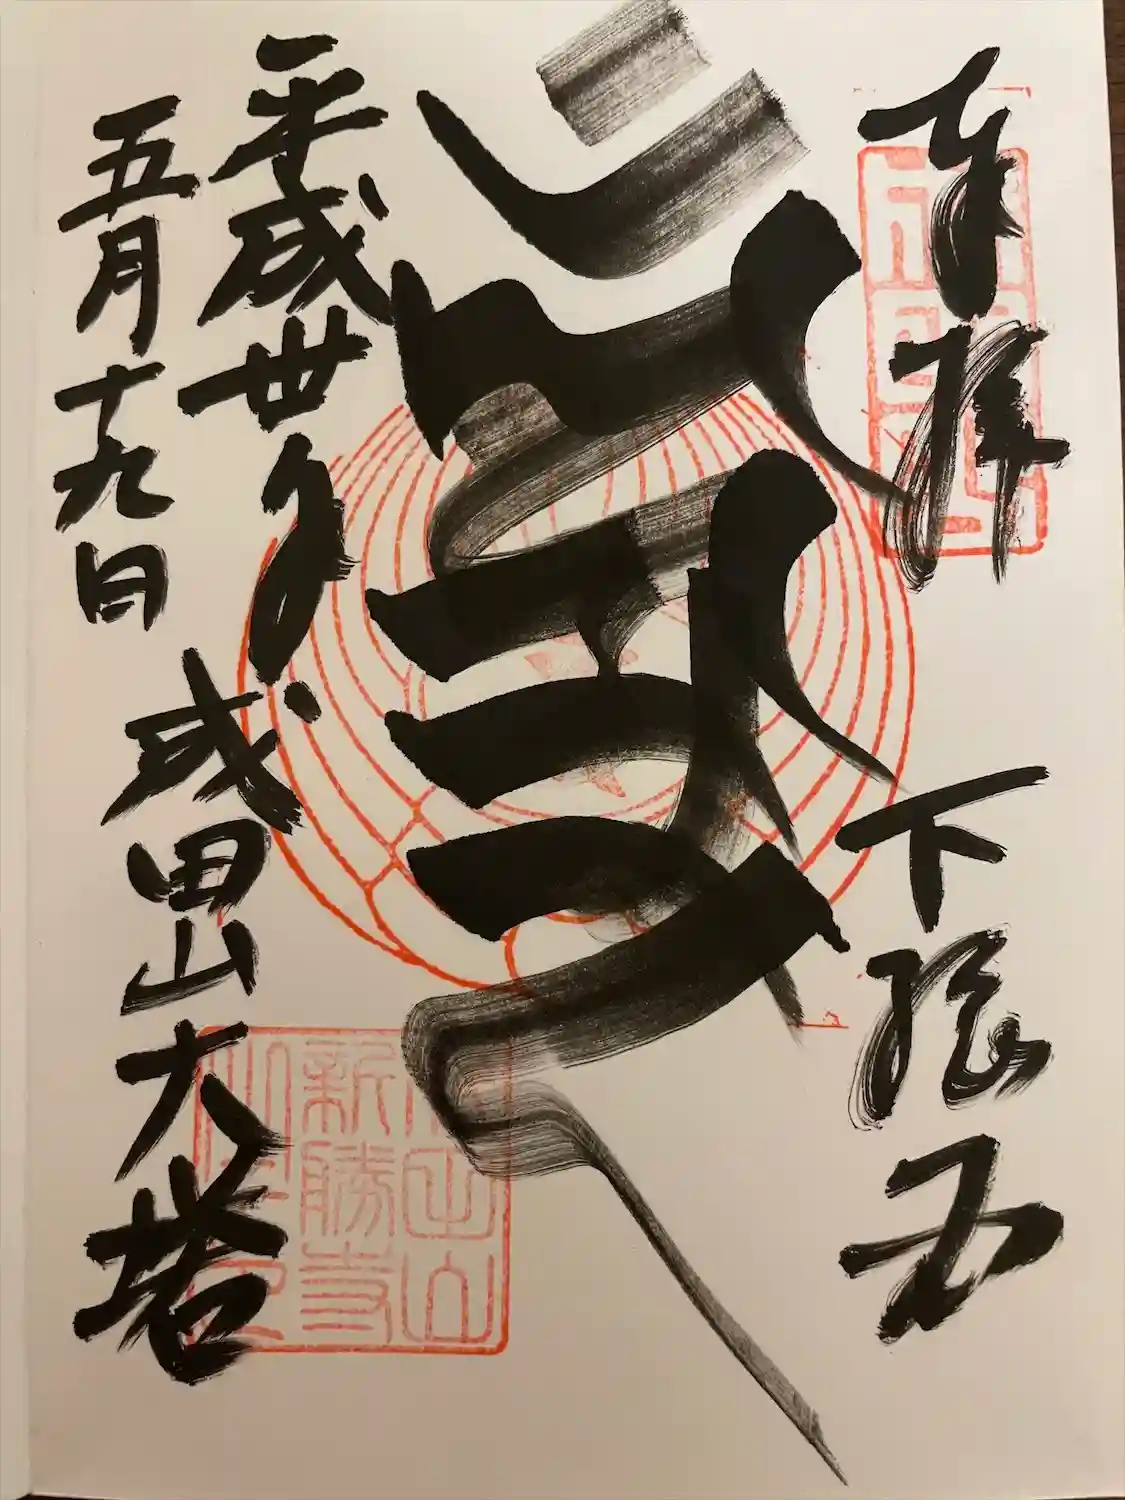 奉拝 下総
平成丗年
五月十九日
成田山大塔
成田山
新勝寺